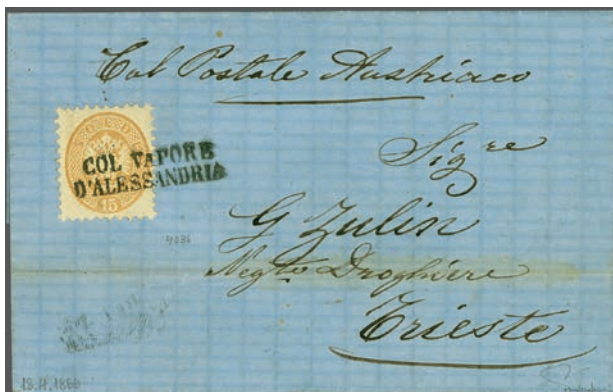 Col Postale Austriaco
COL VAPORE
D'ALESSANDRIA
15
Sig.re
G Zulin
Negte Droghiere
Trieste